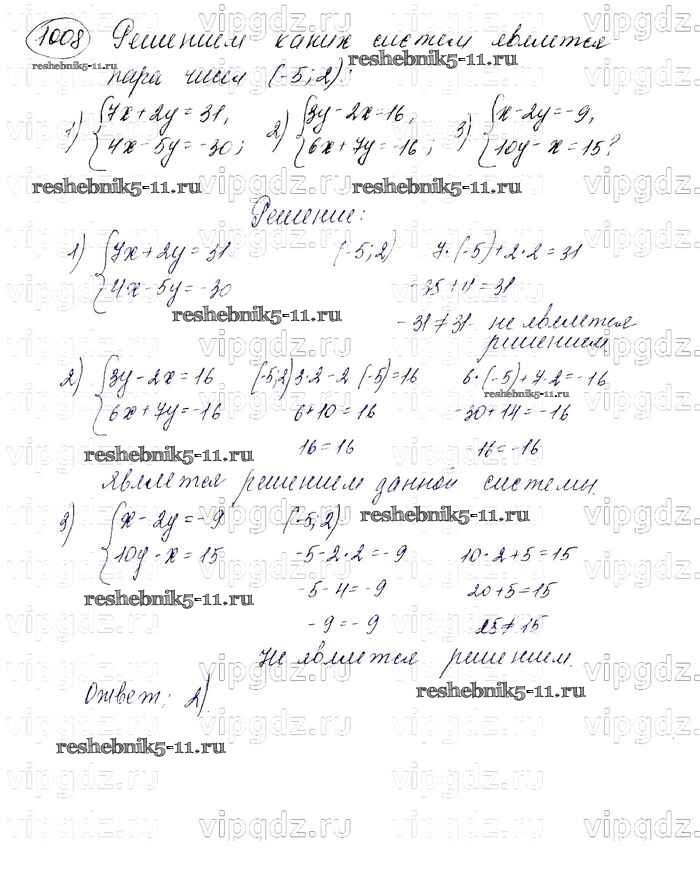 1008 Решением каких систем является
пара чисел (-5; 2):
1) { 7x + 2y = 31, 2) { 3y - 2x = 16, 3) { x - 2y = -9,
4x - 5y = -30; 6x + 7y = -16; 10y - x = 15?
Решение:
1) { 7x + 2y = 31 (-5; 2) 7·(-5) + 2·2 = 31
4x - 5y = -30 -35 + 4 = 31
-31 ≠ 31 не является
решением
2) { 3y - 2x = 16 (-5; 2) 3·2 - 2·(-5) = 16 6·(-5) + 7·2 = -16
6x + 7y = -16 6 + 10 = 16 -30 + 14 = -16
16 = 16 -16 = -16
является решением данной системы.
3) { x - 2y = -9 (-5; 2)
10y - x = 15 -5 - 2·2 = -9 10·2 + 5 = 15
-5 - 4 = -9 20 + 5 = 15
-9 = -9 25 ≠ 15
Не является решением.
Ответ: 2).
reshebnik5-11.ru
vipgdz.ru